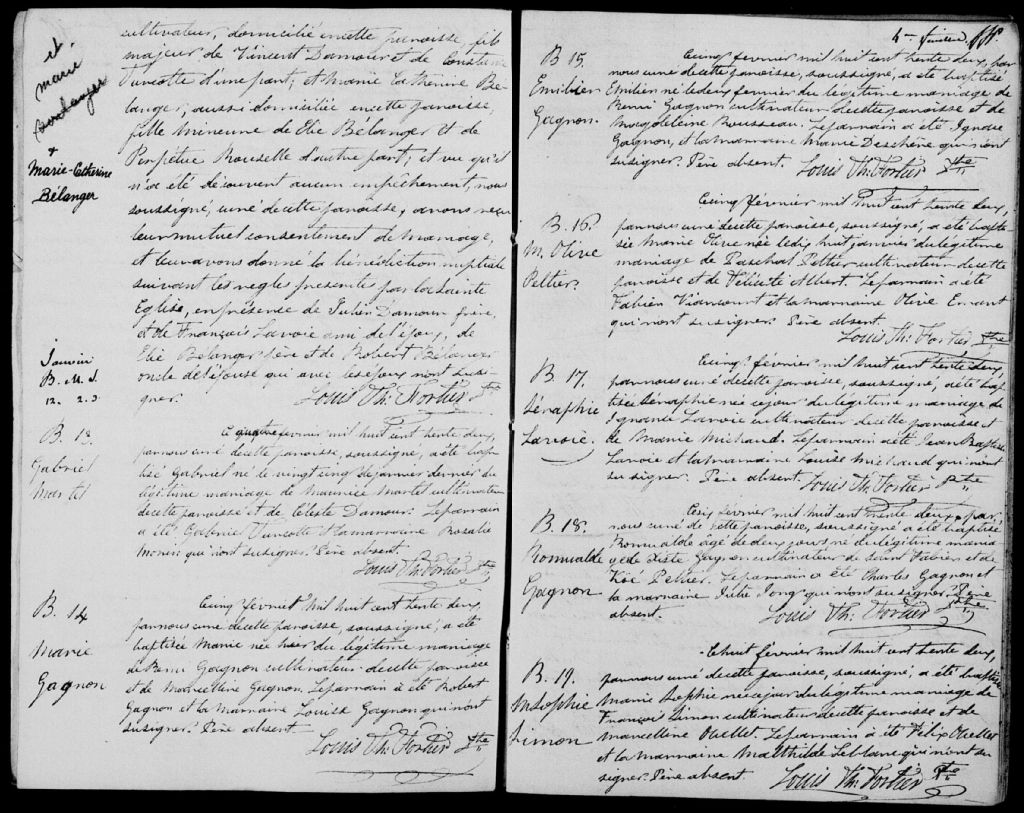 et
marie
Boulanger
+
Marie-Catherine
Bélanger
cultivateur, domicilié en cette paroisse, fils
majeur de Vincent Damour et de Constance
Turcotte d'une part; et Marie Catherine Bé-
langer, aussi domiciliée en cette paroisse,
fille mineure de Elie Bélanger et de
Perpétue Rouselle d'autre part; et vu qu'il
n'a été découvert aucun empêchement, nous
soussigné, curé de cette paroisse, avons reçu
leur mutuel consentement de mariage,
et leur avons donné la bénédiction nuptiale
suivant les règles presentes par la sainte
Eglise, en présence de Julien Damour frère,
et de François Lavoie ami de l'époux, de
Elie Bélanger père et de Robert Bélanger
oncle de l'épouse qui avec les époux n'ont su si-
gner. Louis Th: Fortier Ptre
Janvier
B. M. S.
12. 2. 3
B. 13.
Gabriel
Martel
Ce quatre février mil huit cent trente deux,
par nous curé de cette paroisse, soussigné, a été bap-
tisé Gabriel né le vingt cinq de janvier dernier du
légitime mariage de Maurice Martel cultivateur
de cette paroisse et de Céleste Damour. Le parrain
a été Gabriel Turcotte et la marraine Rosalie
Morin qui n'ont su signer. Père absent.
Louis Th: Fortier Ptre
B. 14
Marie
Gagnon
Le cinq février mil huit cent trente deux,
par nous curé de cette paroisse, soussigné, a été
baptisée Marie née hier du légitime mariage
de Remi Gagnon cultivateur de cette paroisse
et de Marcelline Gagnon. Le parrain a été Robert
Gagnon et la marraine Louisa Gagnon qui n'ont
su signer. Père absent.
Louis Th: Fortier Ptre
4me feuillet
B 15.
Emilien
Gagnon.
Le cinq février mil huit cent trente deux, par
nous curé de cette paroisse, soussigné, a été baptisé
Emilien né le deux fevrier du légitime mariage de
Henri Gagnon cultivateur de cette paroisse et de
Magdeleine Rousseau. Le parrain a été Ignace
Gagnon, et la marraine Marie Deschêne qui n'ont
su signer. Père absent. Louis Th: Fortier Ptre
B. 16.
M. Olive
Peltier.
Le cinq février mil huit cent trente deux,
par nous curé de cette paroisse, soussigné, a été bapti-
sée Marie Olive née le dix huit janvier du légitime
mariage de Paschal Peltier cultivateur de cette
paroisse et de Félicité Albert. Le parrain a été
Fabien Viancourt et la marraine Olive
qui n'ont su signer. Père absent.
Louis Th: Fortier Ptre
B. 17.
Séraphie
Lavoie.
Le cinq février mil huit cent trente deux,
par nous curé de cette paroisse, soussigné, a été bap-
tisée Séraphie née ce jour du légitime mariage de
Ignace Lavoie cultivateur de cette paroisse et
de Marie Michaud. Le parrain a été Jean Baptiste
Lavoie et la marraine Louise Michaud qui n'ont
su signer. Père absent. Louis Th: Fortier Ptre
B. 18.
Romualde
Gagnon
Le cinq février mil huit cent trente deux, par
nous curé de cette paroisse, soussigné a été baptisé
Romualde agé de deux jours né du légitime maria-
ge de Sixte Gagnon cultivateur de Saint Fabien et de
Zoé Peltier. Le parrain a été Charles Gagnon et
la marraine Julie qui n'ont su signer. Père
absent. Louis Th: Fortier Ptre
B. 19.
M Sophie
Simon
Le huit février mil huit cent trente deux,
par nous curé de cette paroisse, soussigné, a été baptisée
Marie Sophie née ce jour du légitime mariage de
François Simon cultivateur de cette paroisse et de
Marcelline Ouellet. Le parrain a été Félix Ouellet
et la marraine Malthilde Leblanc qui n'ont su
signer. Père absent Louis Th: Fortier Ptre